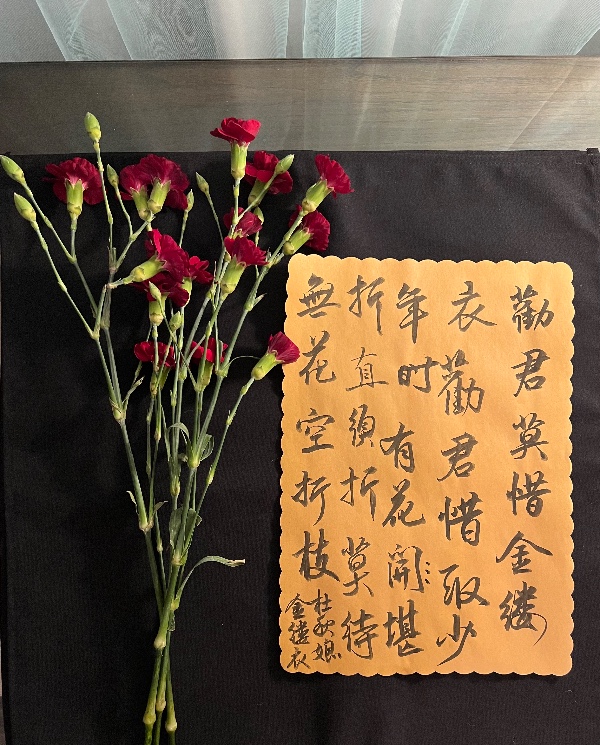 勸君莫惜金缕
衣勸君惜取少
年时有花開堪
折直須折莫待
無花空折枝
杜秋娘
金缕衣